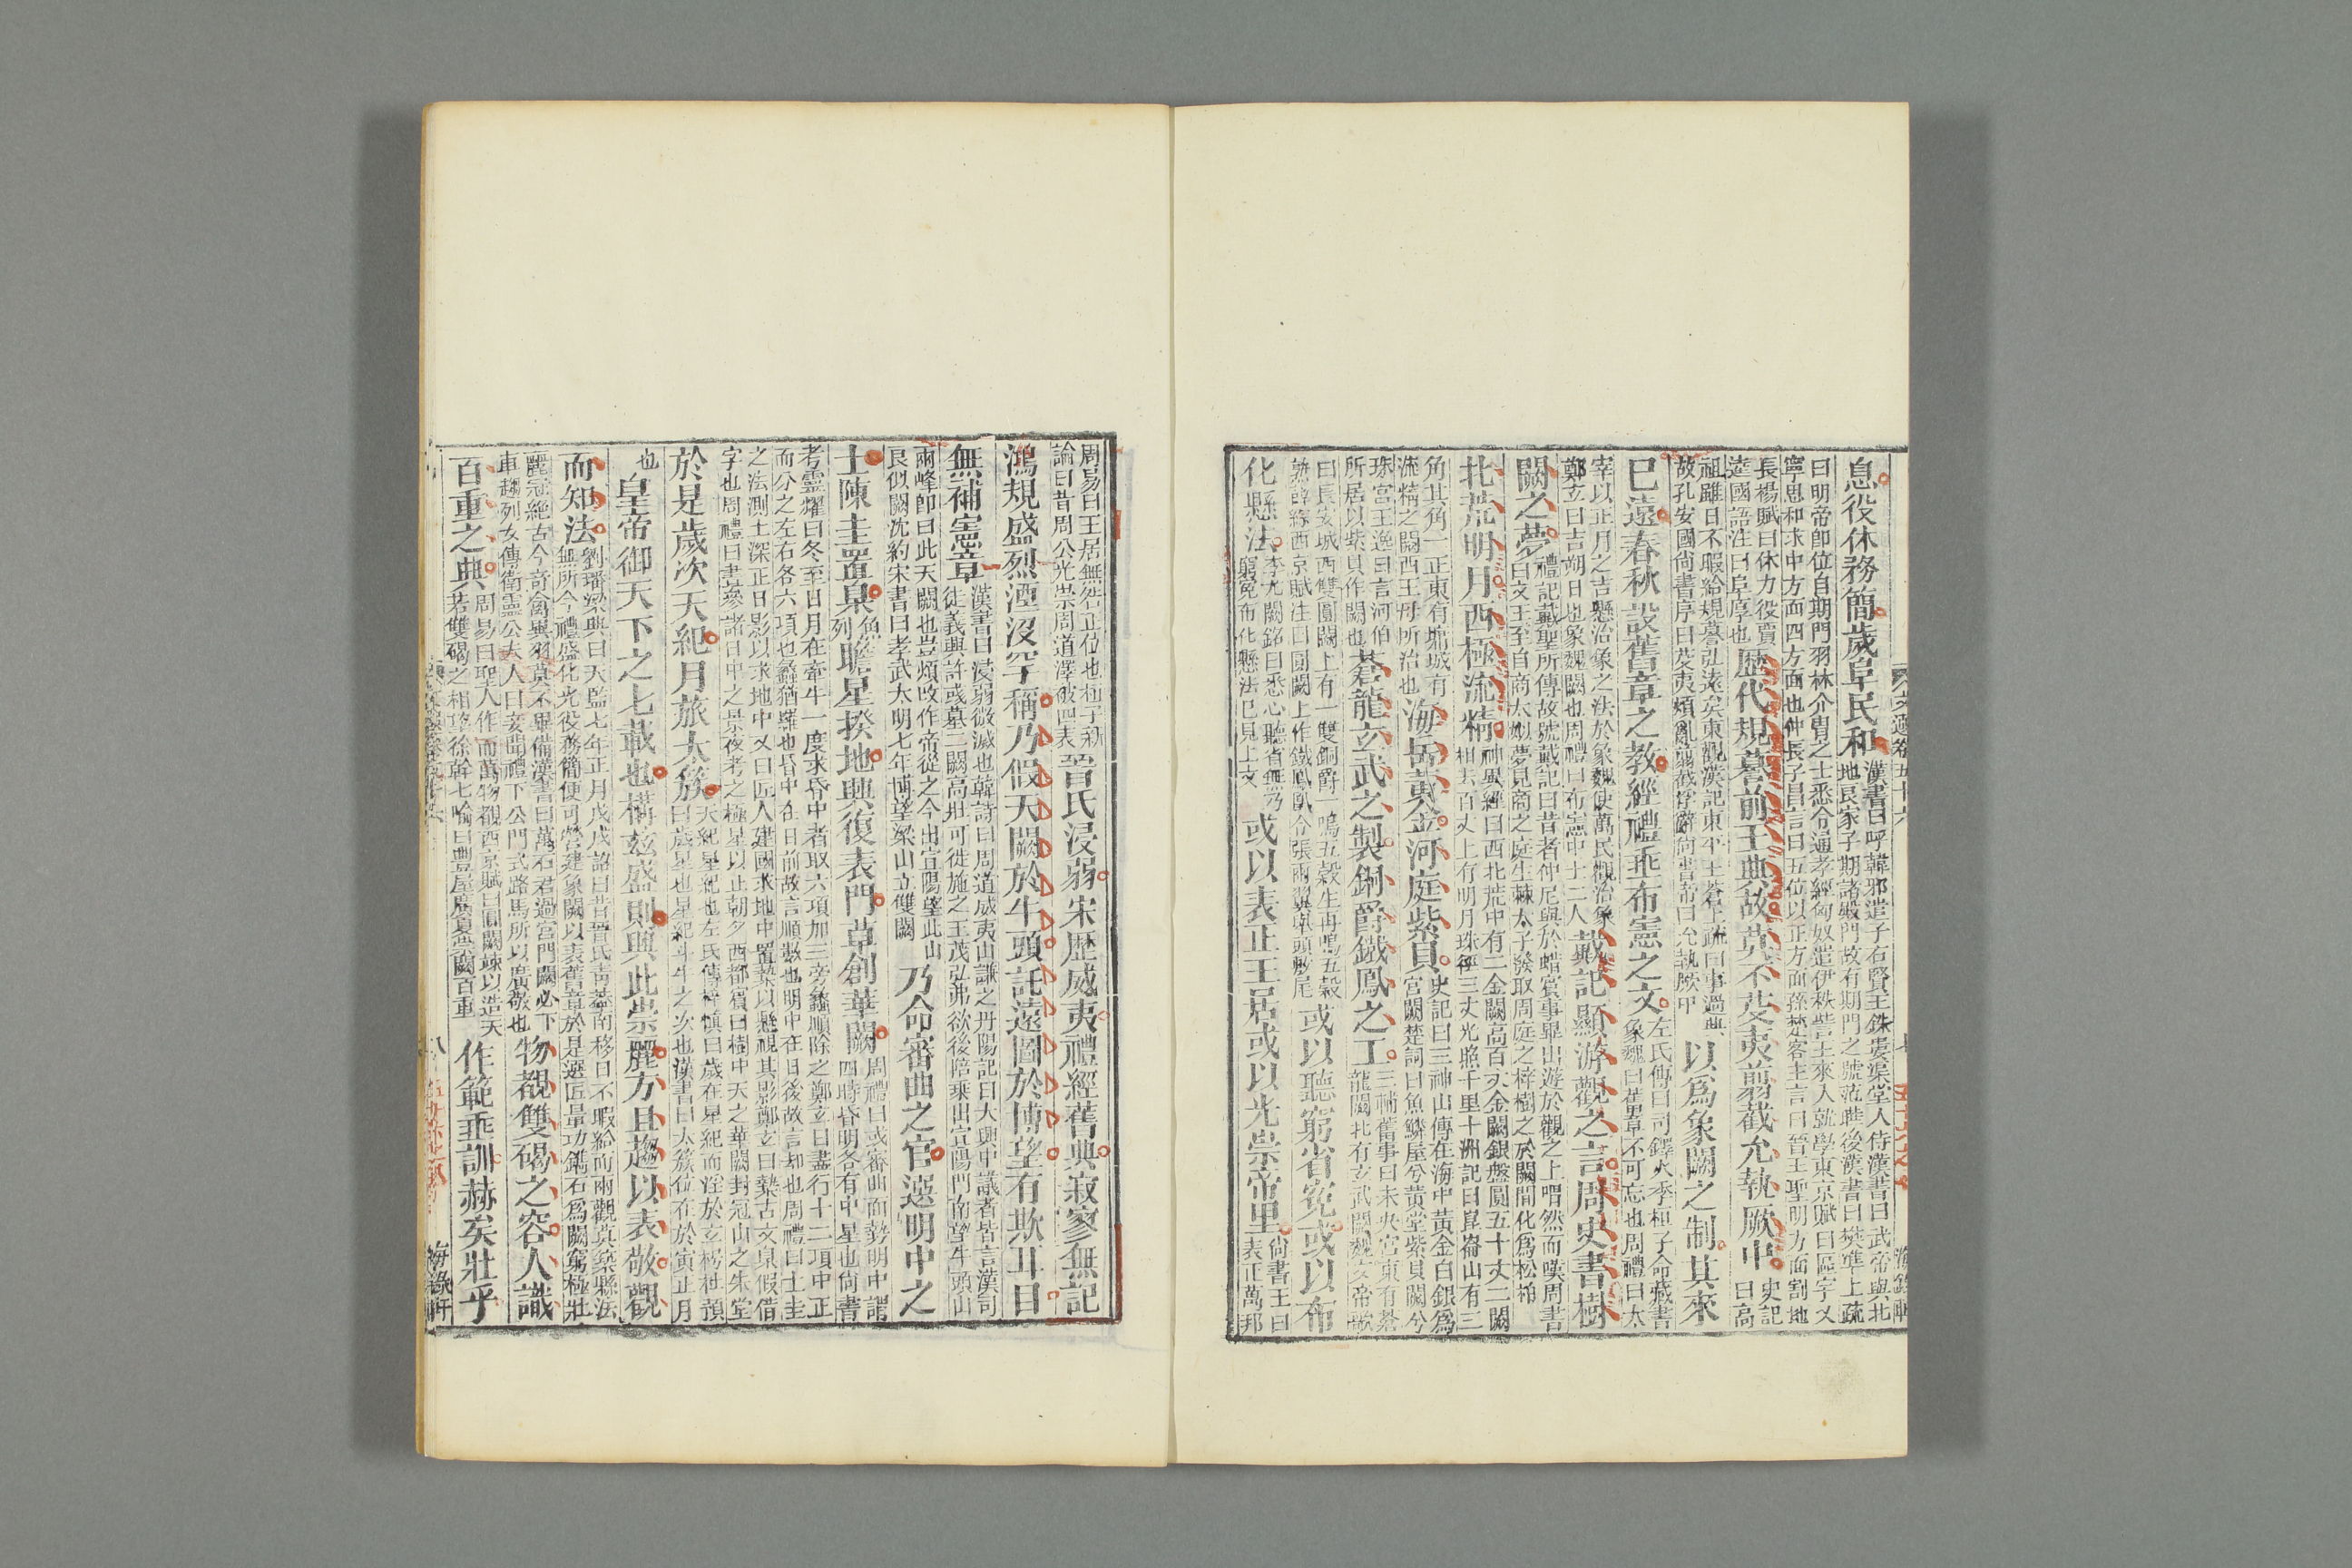 息役休務簡歲阜民和漢書曰呼韓邪遣子右賢王銖婁渠堂入侍漢書曰武帝與北
地良家子期諸殿門故有期門之號范曄後漢書曰樊準上疏
曰明帝卽位自期門羽林介胄之士悉令通孝經匈奴遣伊秩訾王來入就學東京賦曰區宇乂
寧思和求中方面四方面也仲長子昌言曰五位以正方面孫楚客主言曰晉王聖明方面割地
長楊賦曰休力役賈
逵國語注曰阜厚也歷代規謩前王典故莫不芟夷翦截允執厥中史記
曰高
祖雖日不暇給規摹弘遠矣東觀漢記東平王蒼上疏曰事過典
故孔安國尚書序曰芟夷煩亂翦截浮辭尚書帝曰允執厥中以爲象闕之制其來
已遠春秋設舊章之教經禮垂布憲之文左氏傳曰司鐸火季桓子命藏書
象魏曰舊章不可忘也周禮曰太
宰以正月之吉懸治象之法於象魏使萬民觀治象
鄭玄曰吉朔日也象魏闕也周禮曰布憲中士二人戴記顯游觀之言周史書樹
闕之夢禮記戴聖所傳故號戴記曰昔者仲尼與於蜡賓事畢出遊於觀之上喟然而嘆周書
曰文王至自商太姒夢見商之庭生棘太子發取周庭之梓樹之於闕閒化爲松柏
北荒明月西極流精神異經曰西北荒中有二金闕高百丈金闕銀盤圓五十丈二闕
相去百丈上有明月珠徑三丈光照千里十洲記曰崑崙山有三
角其角一正東有墉城有
流精之闕西王母所治也海岳黃金河庭紫貝史記曰三神山傳在海中黃金白銀爲
宮闕楚詞曰魚鱗屋兮黃堂紫貝闕兮
珠宮王逸曰言河伯
所居以紫貝作闕也蒼龍玄武之製銅爵鐵鳳之工三輔舊事曰未央宮東有蒼
龍闕北有玄武闕魏文帝歌
曰長安城西雙圓闕上有一雙銅爵一鳴五穀生再鳴五穀
孰薛綜西京賦注曰圓闕上作鐵鳳凰令張兩翼舉頭敷尾或以聽窮省冤或以布
化懸法李尤闕銘曰悉心聽省無乃
窮冤布化懸法已見上文或以表正王居或以光崇帝里尚書王曰
表正萬邦
周易曰王居無咎正位也桓子新
論曰昔周公光崇周道澤被四表晉氏浸弱宋歷威夷禮經舊典寂寥無記
鴻規盛烈湮沒罕稱乃假天闕於牛頭託遠圖於博望有欺耳目
無補憲章漢書曰浸弱微滅也韓詩曰周道威夷山謙之丹陽記曰大興中議者皆言漢司
徒義興許彧墓二闕高壯可徙施之王茂弘弗欲後陪乘出宣陽門南望牛頭山
兩峰卽曰此天闕也豈煩改作帝從之今出宣陽望此山
良似闕沈約宋書曰孝武大明七年博望梁山立雙闕乃命審曲之官選明中之
士陳圭置臬魚
列瞻星揆地興復表門草創華闕周禮曰或審曲而勢明中謂
四時昏明各有中星也尚書
考靈耀曰冬至日月在牽牛一度求昏中者取六項加三旁蠡順除之鄭玄曰盡行十二項中正
而分之左右各六項也蠡猶羅也昏中在日前故言順數也明中在日後故言却也周禮曰土圭
之法測土深正日影以求地中又曰匠人建國求地中置槷以懸視其影鄭玄曰槷古文臬假借
字也周禮曰晝參諸日中之景夜考之極星以正朝夕西都賓曰樹中天之華闕封冠山之朱堂
於是歲次天紀月旅太簇天紀星紀也左氏傳梓愼曰歲在星紀而淫於玄枵杜預
曰歲星也星紀斗牛之次也漢書曰太簇位在於寅正月
也皇帝御天下之七載也構茲盛則興此崇麗方且趨以表敬觀
而知法劉璠梁典曰天監七年正月戊戌詔曰昔晉氏靑蓋南移日不暇給而兩觀莫築縣法
無所今禮盛化光役務簡便可營建象闕以表舊章於是選匠量功鐫石爲闕窮極壯
麗冠絕古今奇禽異羽莫不畢備漢書曰萬石君過宮門闕必下
車趨列女傳衛靈公夫人曰妾聞禮下公門式路馬所以廣敬也物覩雙碣之容人識
百重之典周易曰聖人作而萬物覩西京賦曰圜闕竦以造天
若雙碣之相望徐幹七喻曰豐屋廣夏崇闕百重作範垂訓赫矣壯乎
八
海錄軒